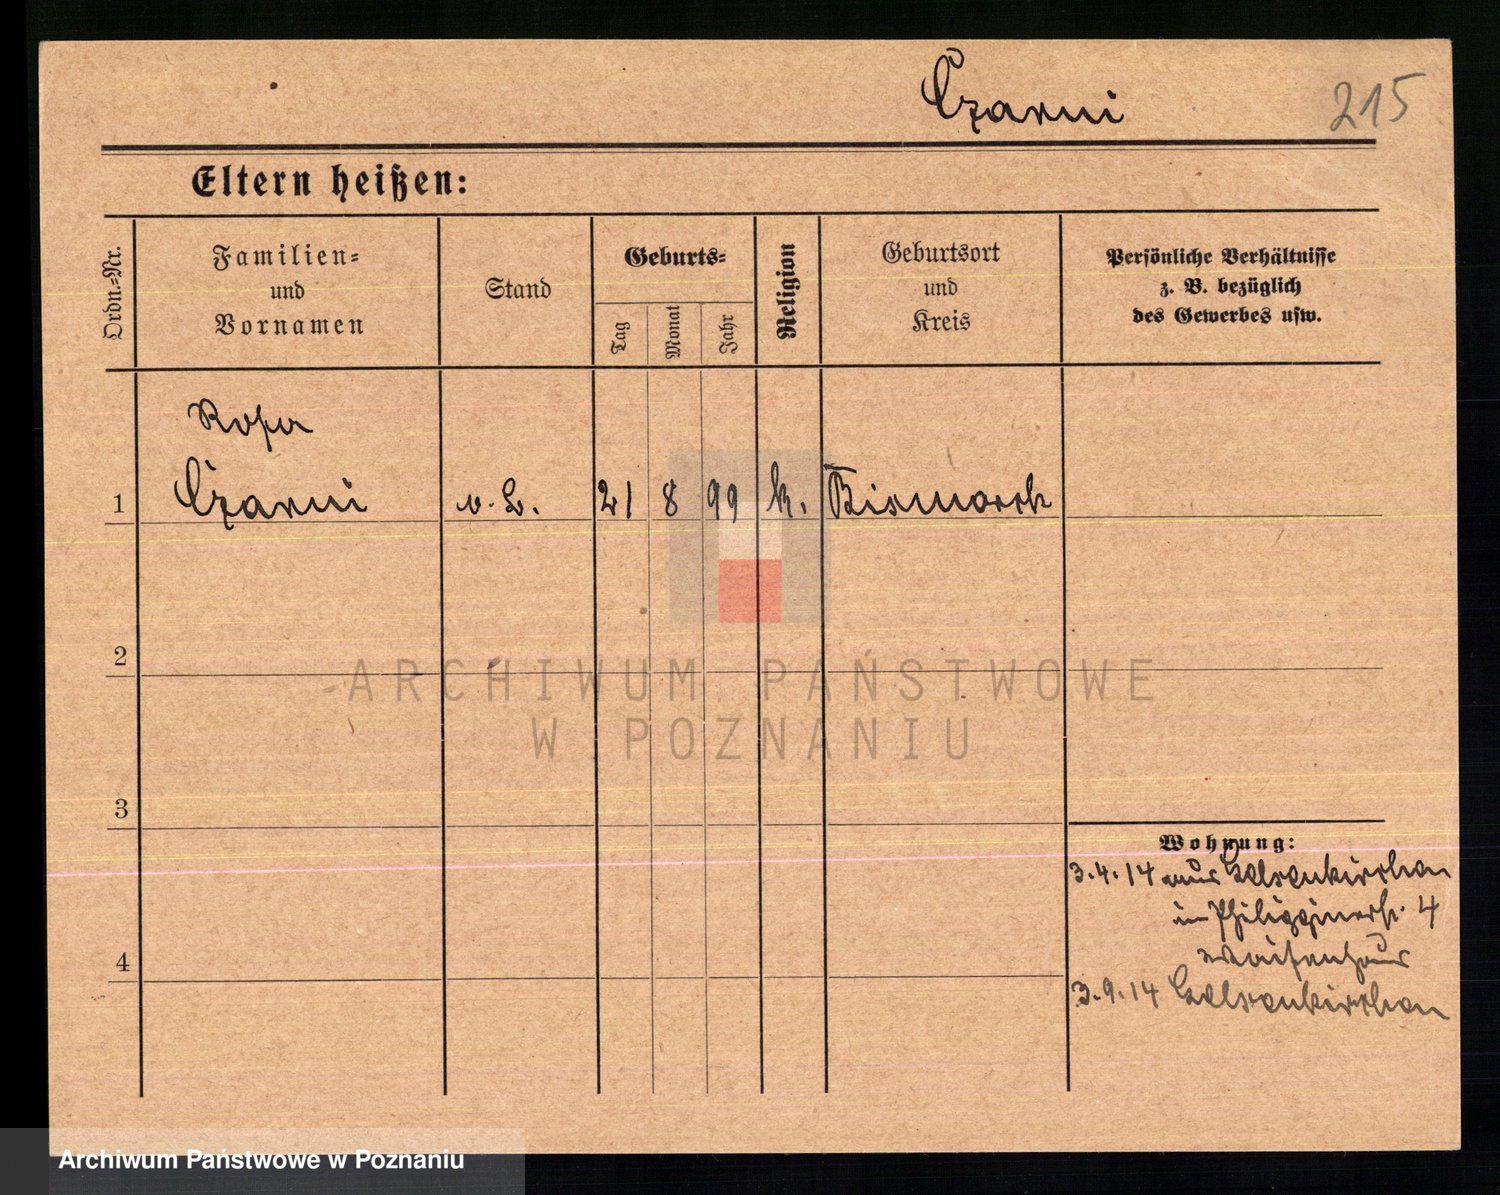 Czarni
215
Eltern heißen:
Ordn.-Nr.
Familien-
und
Vornamen
Stand
Geburts-
Tag
Monat
Jahr
Religion
Geburtsort
und
Kreis
Persönliche Verhältnisse
z. B. bezüglich
des Gewerbes usw.
Rosa
1 Czarni 21 8 99 k. Bismarck
2
ARCHIWUM PAŃSTWOWE
W POZNANIU
3
Wohnung:
3.4.14 aus Gelsenkirchen
in Philippinerstr. 4
Waisenhaus
4
3.9.14 Gelsenkirchen
Archiwum Państwowe w Poznaniu